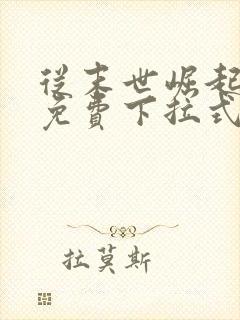 從末世崛起
免費下拉式
拉莫斯